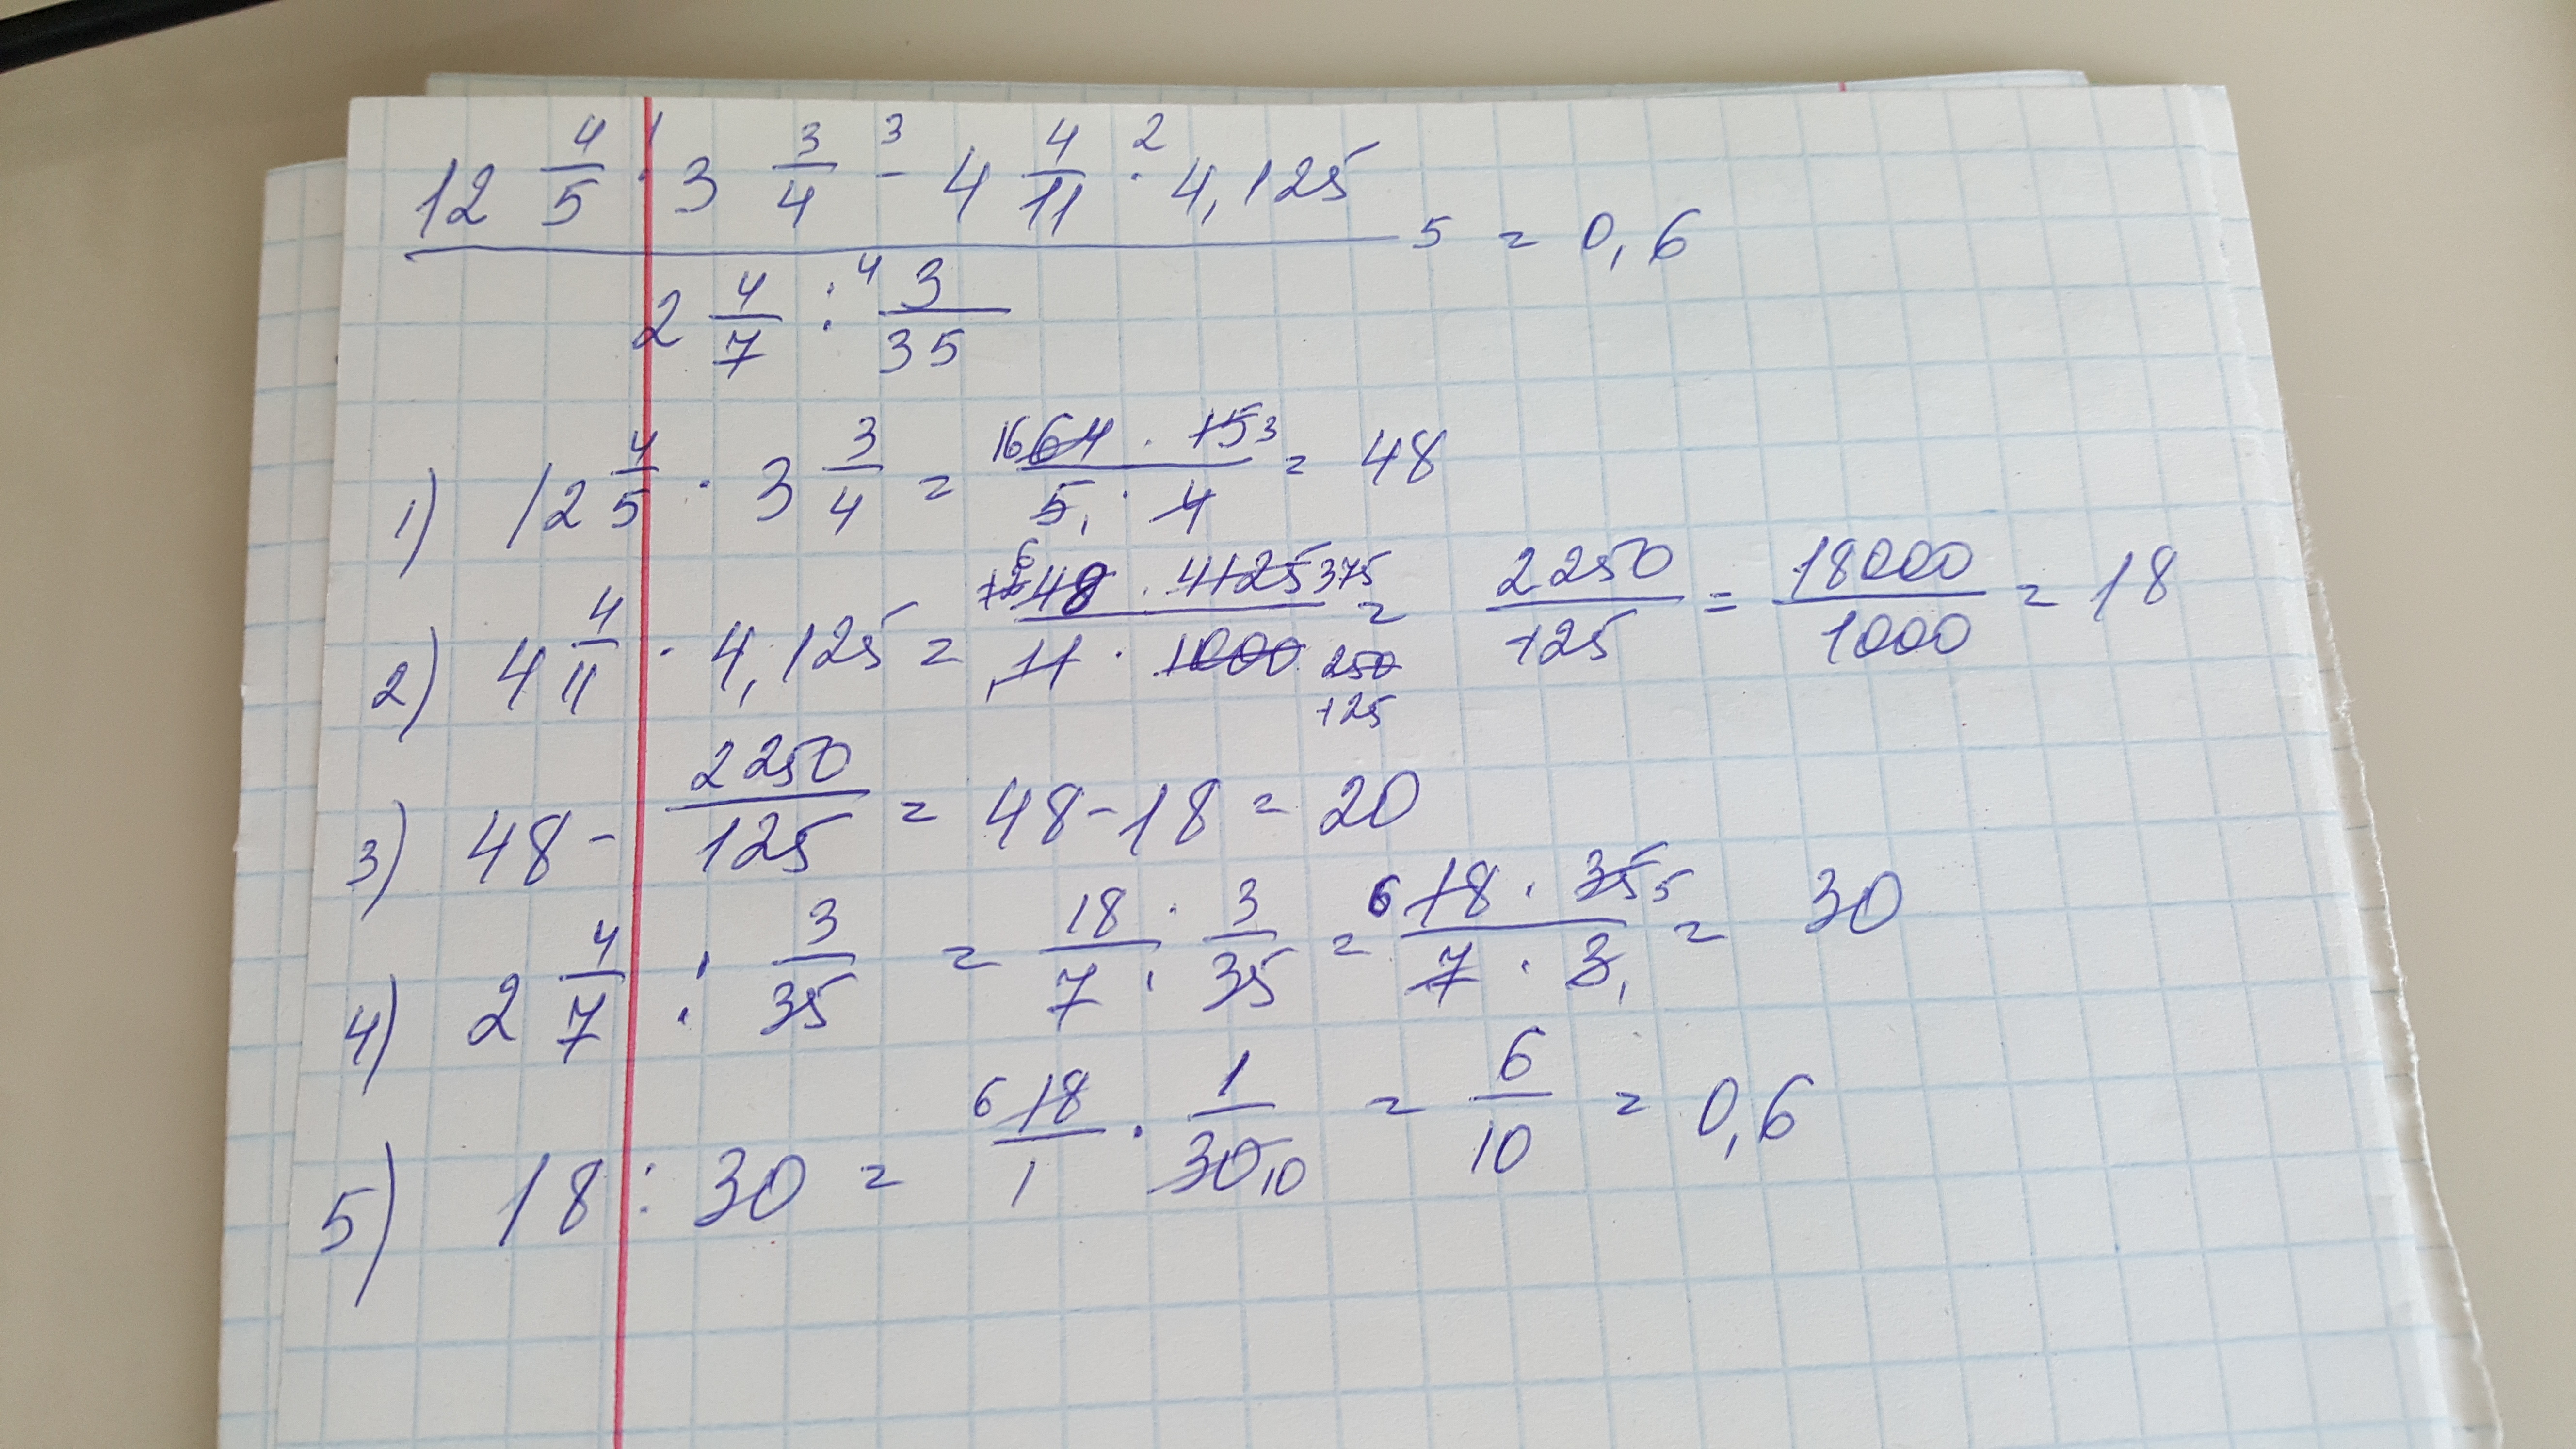 12 4/5 ·¹ 3 3/4 -³ 4 4/11 ·² 4,125
5 = 0,6
2 4/7 :⁴ 3/35
1) 12 4/5 · 3 3/4 = 16 64 · 15 3 / 5 1 · 4 = 48
2) 4 4/11 · 4,125 = 6 12 48 · 4125 375 / 1 11 · 1000 250 125 = 2250/125 = 18000/1000 = 18
3) 48 - 2250/125 = 48 - 18 = 20
4) 2 4/7 : 3/35 = 18/7 : 3/35 = 6 18 · 35 5 / 7 · 3 1 = 30
5) 18 : 30 = 6 18/1 · 1/30 10 = 6/10 = 0,6